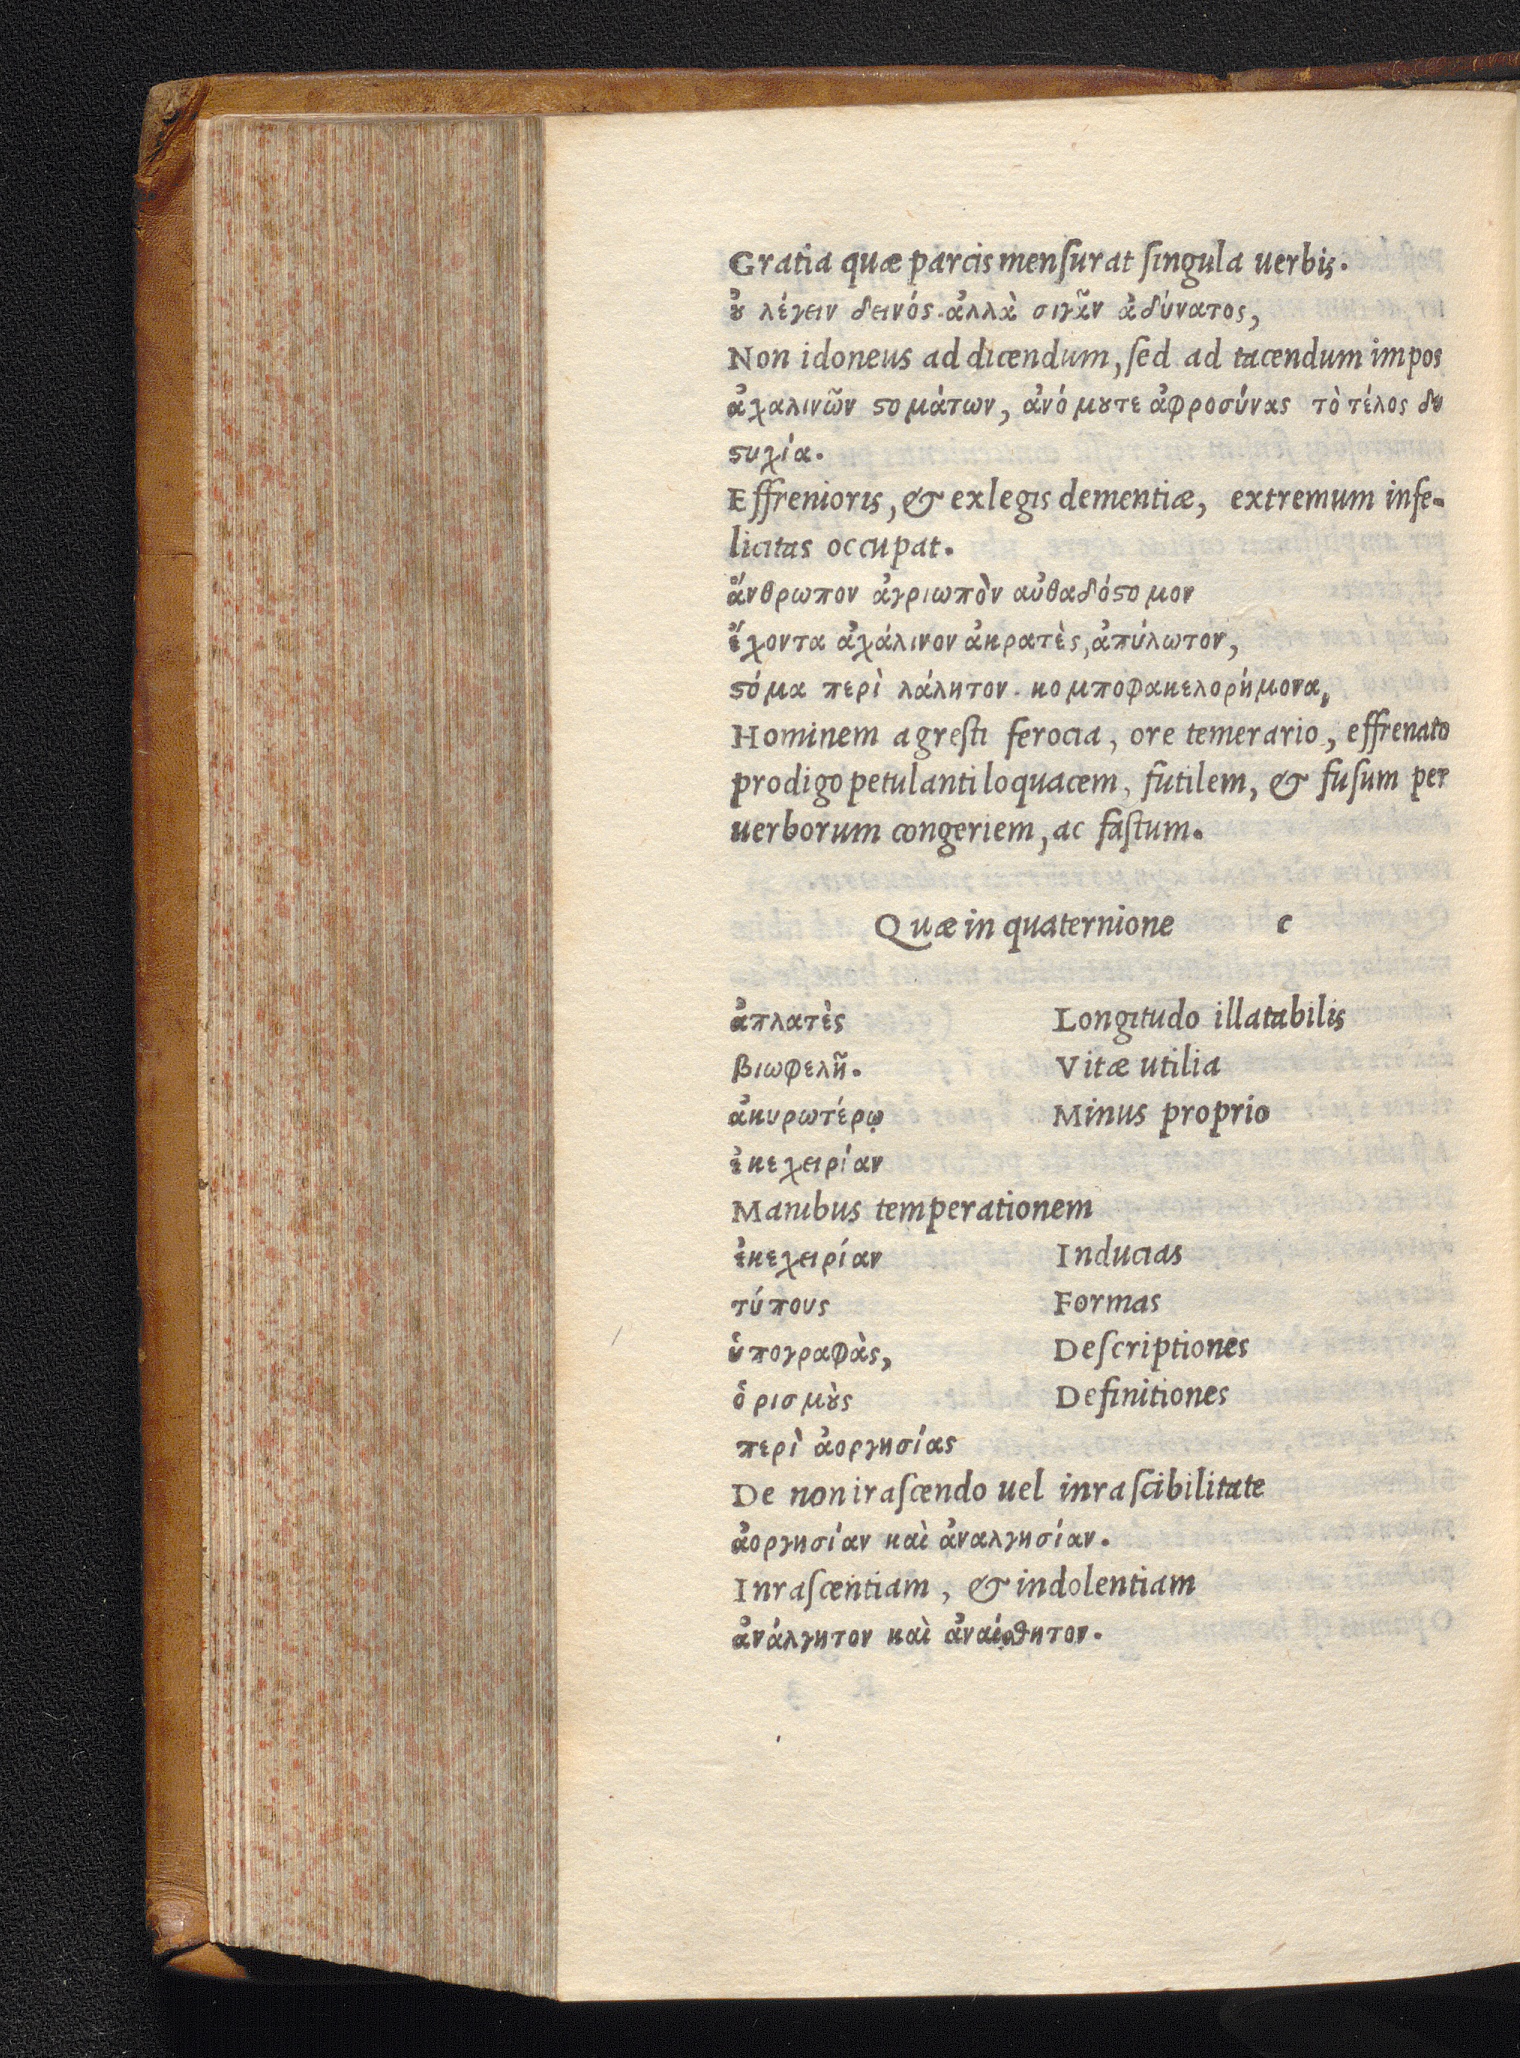 Gratia quæ parcis mensurat singula uerbis.
ȣ̓ λέγειν δεινός. ἀλλὰ σιγᾶν ἀδύνατος,
Non idoneus ad dicendum, sed ad tacendum impos
ἀχαλινῶν ϛομάτων, ἀνόμȣτε ἀφροσύνας τὸ τέλος δυ
ϛυχία.
Effrenioris, & exlegis dementiæ, extremum infe-
licitas occupat.
ἄνθρωπον ἀγριωπὸν αὐθαδόϛομον
ἔχοντα ἀχάλινον ἀκρατὲς, ἀπύλωτον,
ϛόμα περὶ λάλητον. κομποφακελορήμονα,
Hominem agresti ferocia, ore temerario, effrenato
prodigo petulanti loquacem, futilem, & fusum per
uerborum congeriem, ac fastum.
Quæ in quaternione c
ἀπλατὲς Longitudo illatabilis
βιωφελῆ. Vitæ utilia
ἀκυρωτέρῳ Minus proprio
ἐκεχειρίαν
Manibus temperationem
ἐκεχειρίαν Inducias
τύπους Formas
ὑπογραφὰς, Descriptiones
ὁρισμȣ̀ς Definitiones
περὶ ἀοργησίας
De non irascendo uel inrascibilitate
ἀοργησίαν καὶ ἀναλγησίαν.
Inrascentiam, & indolentiam
ἀνάλγητον καὶ ἀναίσθητον.